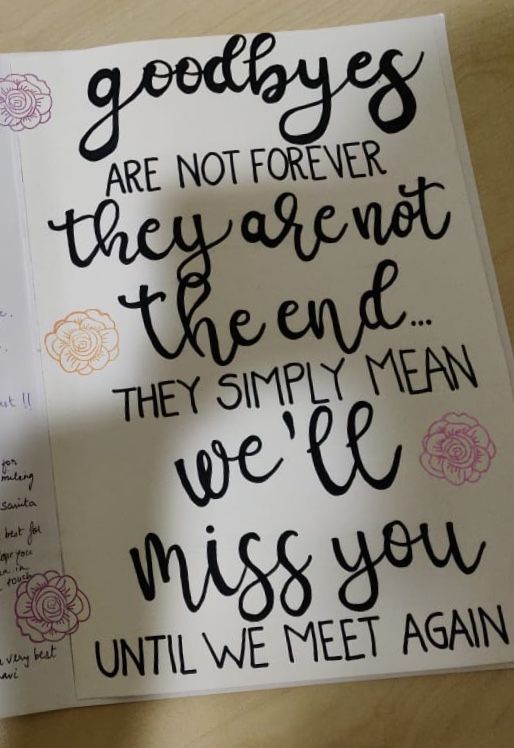 goodbyes
ARE NOT FOREVER
they are not
the end...
THEY SIMPLY MEAN
we'll
miss you
UNTIL WE MEET AGAIN
!!
for
sarita
best for
you
in
touch
very best